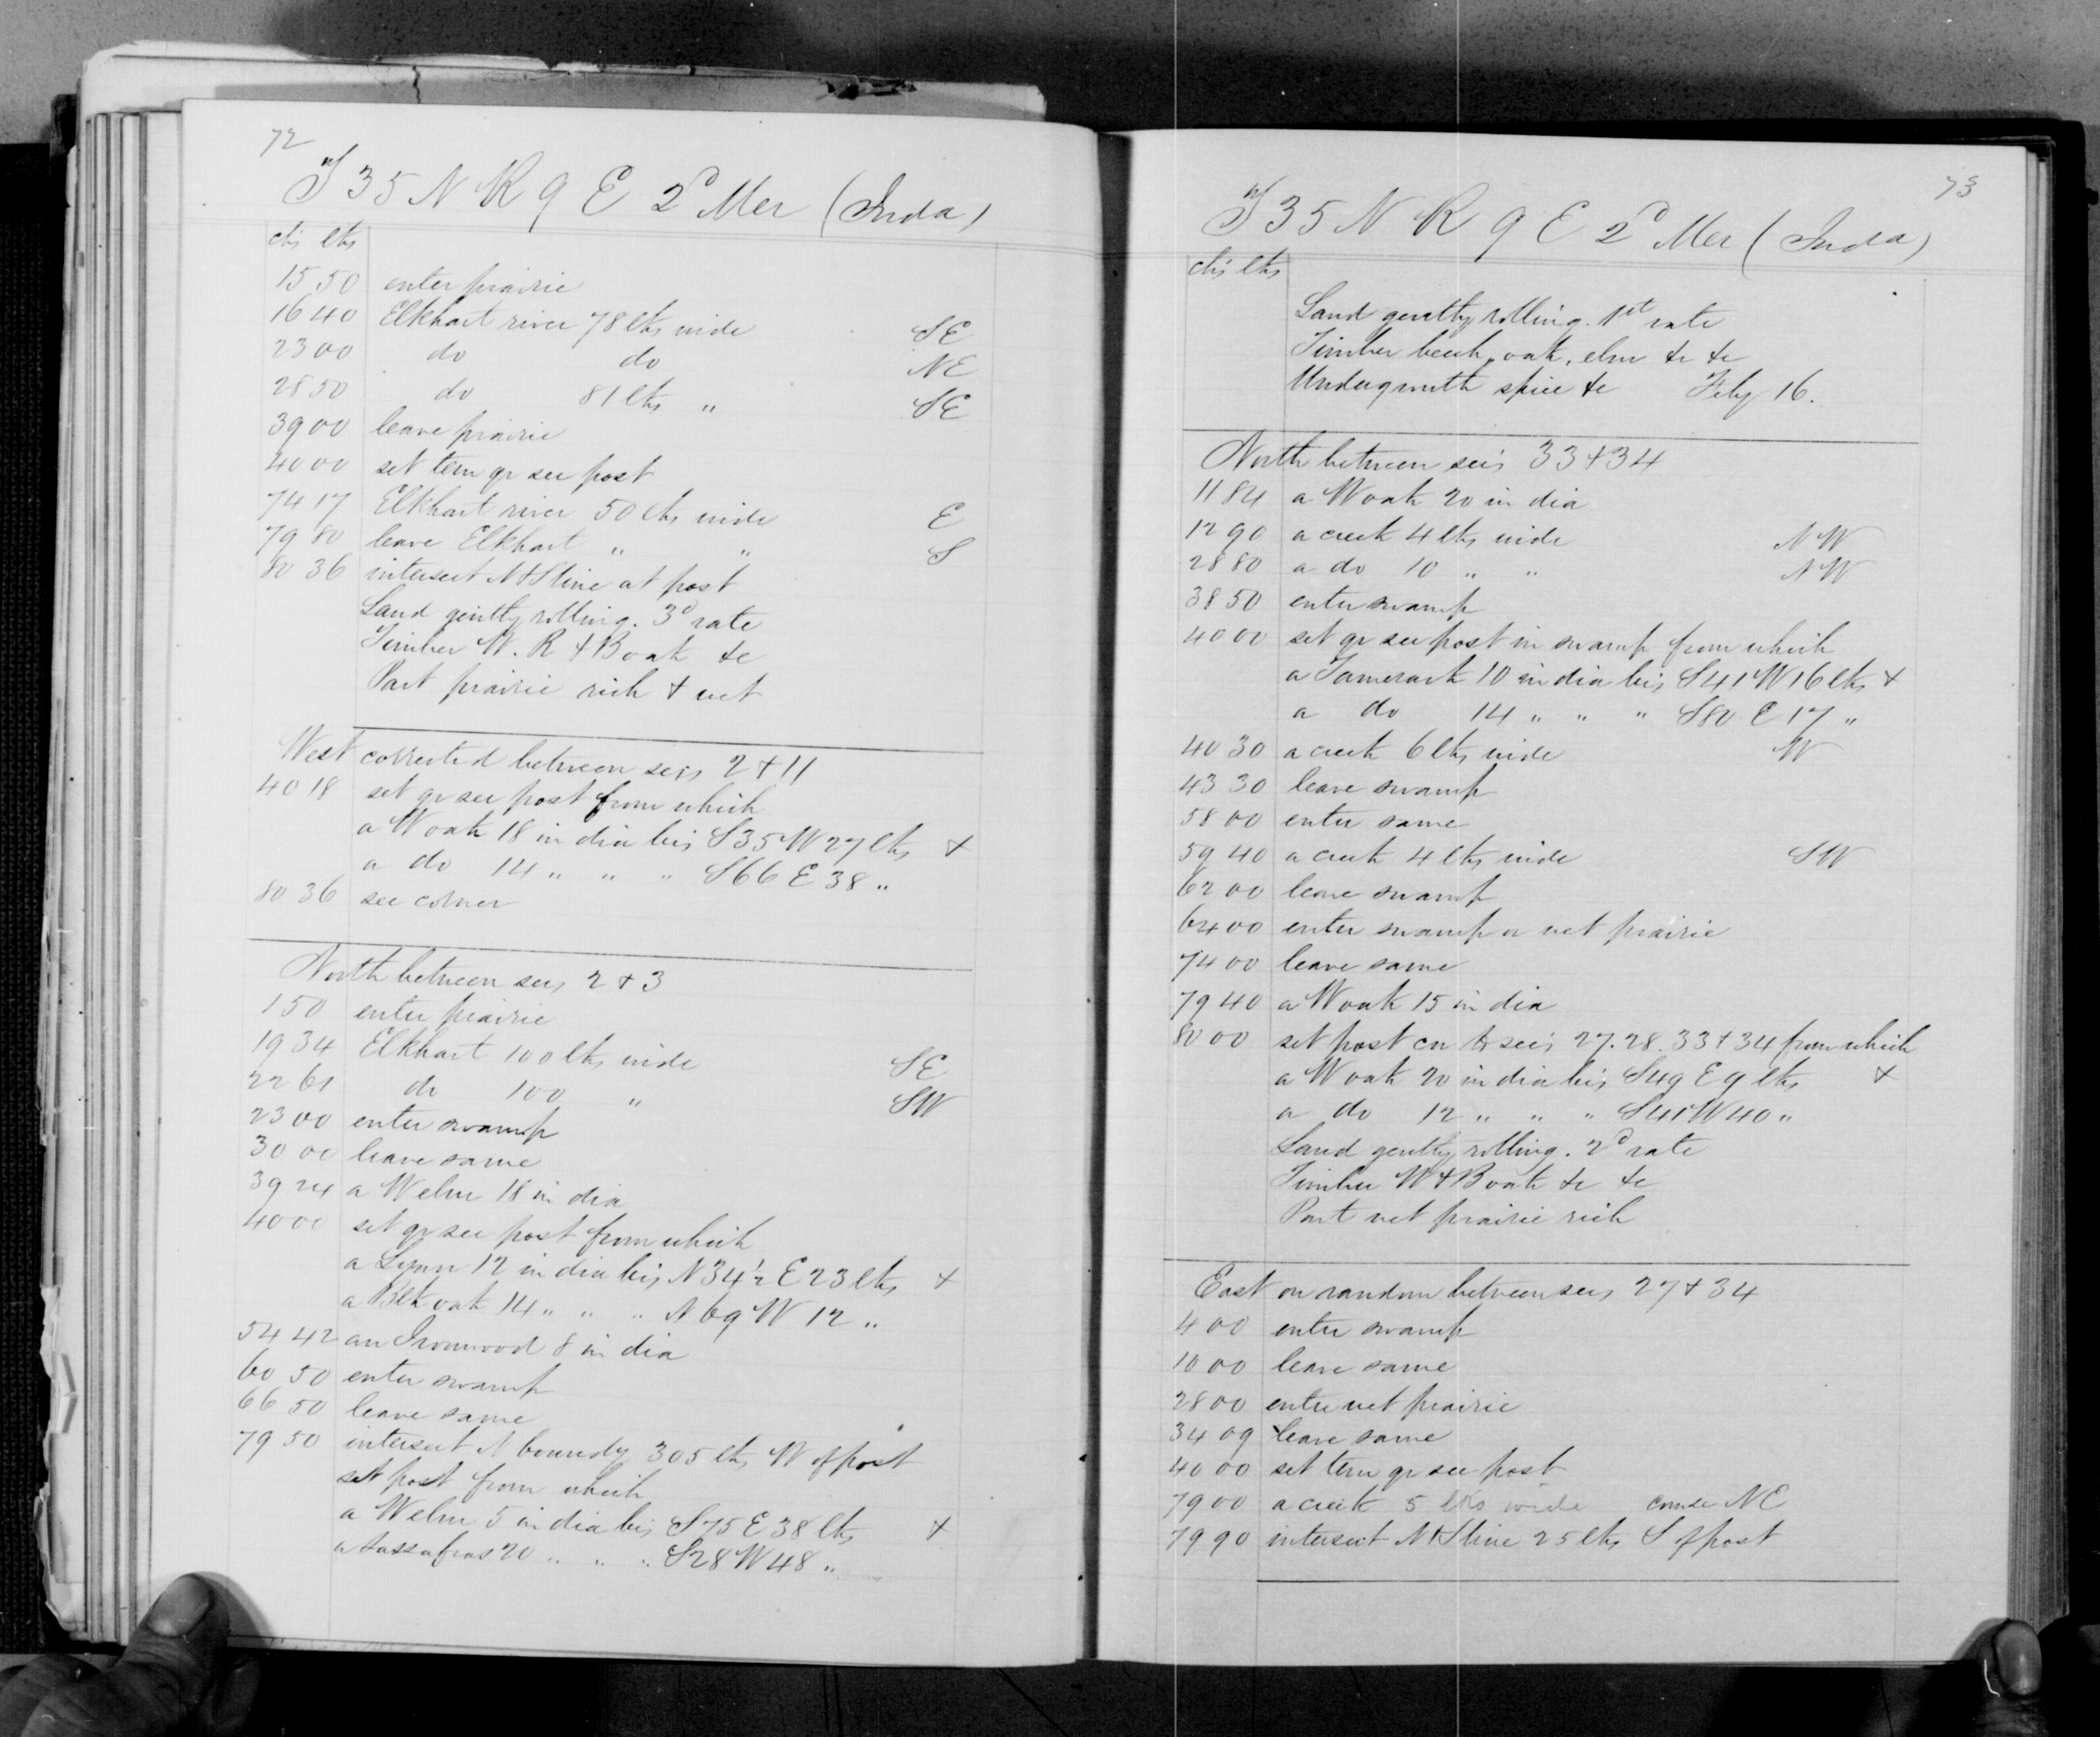 72
T 35 N R 9 E 2d Mer (Inda)
chs lks
15 50 enter prairie
16 40 Elkhart river 78 lks wide SE
23 00 do do NE
28 50 do 81 lks " SE
39 00 leave prairie
40 00 set tem qr sec post
74 17 Elkhart river 50 lks wide E
79 80 leave Elkhart " " S
80 36 intersect N&S line at post
Land gently rolling. 3d rate
Timber W. R & B oak &c
Part prairie rich & wet
West corrected between secs 2 & 11
40 18 set qr sec post from which
a W oak 18 in dia brs S 35 W 27 lks +
a do 14 " " " S 66 E 38 "
80 36 sec corner
North between secs 2 & 3
1 50 enter prairie
19 34 Elkhart 100 lks wide SE
22 61 do 100 " SW
23 00 enter swamp
30 00 leave same
39 24 a W elm 18 in dia
40 00 set qr sec post from which
a Lynn 12 in dia brs N 34 1/2 E 23 lks +
a Blk oak 14 " " " N 69 W 12 "
54 42 an Ironwood 8 in dia
60 50 enter swamp
66 50 leave same
79 50 intersect N boundy 305 lks W of post
set post from which
a W elm 5 in dia brs S 75 E 38 lks +
a sassafras 20 " " " S 28 W 48 "
73
T 35 N R 9 E 2d Mer (Inda)
chs lks
Land gently rolling. 1st rate
Timber beech, oak, elm &c &c
Undergrowth spice &c Feby 16.
North between secs 33 & 34
11 84 a W oak 20 in dia
12 90 a creek 4 lks wide NW
28 80 a do 10 " " NW
38 50 enter swamp
40 00 set qr sec post in swamp from which
a Tamerack 10 in dia brs S 41 W 16 lks +
a do 14 " " " S 80 E 17 "
40 30 a creek 6 lks wide W
43 30 leave swamp
58 00 enter same
59 40 a creek 4 lks wide SW
62 00 leave swamp
64 00 enter swamp or wet prairie
74 00 leave same
79 40 a W oak 15 in dia
80 00 set post cor to secs 27. 28. 33 & 34 from which
a W oak 20 in dia brs S 49 E 9 lks +
a do 12 " " " S 41 W 40 "
Land gently rolling. 2d rate
Timber W & B oak &c &c
Part wet prairie rich
East on random between secs 27 & 34
4 00 enter swamp
10 00 leave same
28 00 enter wet prairie
34 09 leave same
40 00 set tem qr sec post
79 00 a creek 5 lks wide course NE
79 90 intersect N&S line 25 lks S of post